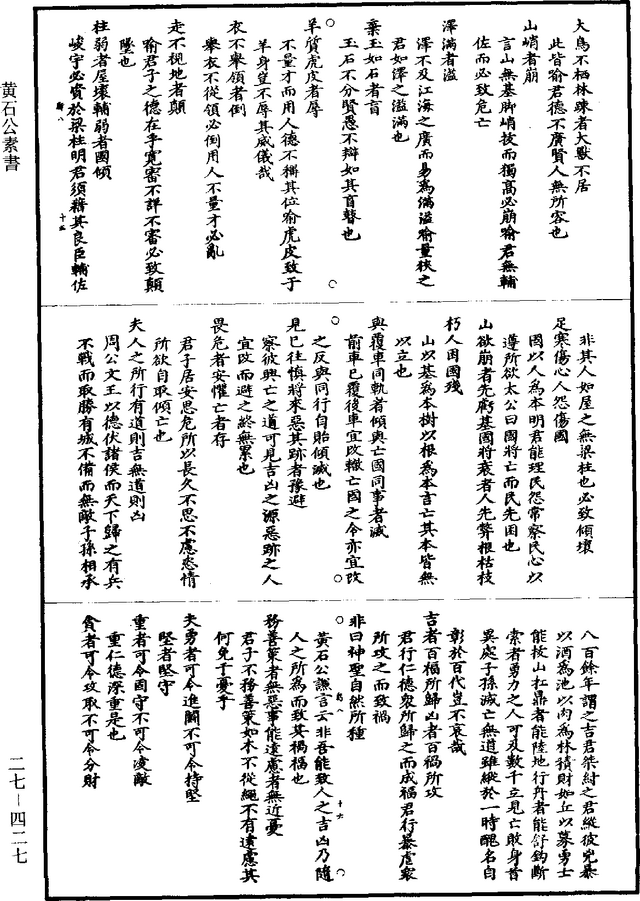 黃石公素書
大鳥不栖林踈者大獸不居
此皆喻君德不廣賢人無所容也
山峭者崩
言山無基脚峭拔而獨高必崩喻君無輔
佐而必致危亡
澤滿者溢
澤不及江海之廣而易為滿溢喻量狹之
君如澤之溢滿也
棄玉如石者盲
玉石不分賢愚不辯如其盲瞽也
羊質虎皮者辱
不量才而用人德不稱其位喻虎皮致于
羊身豈不辱其威儀哉
衣不舉領者倒
舉衣不從領必倒用人不量才必亂
走不視地者顛
喻君子之德在乎寬審不詳不審必致顛
墜也
柱弱者屋壞輔弱者國傾
峻宇必資於梁柱明君須藉其良臣輔佐
十五
非其人如屋之無梁柱也必致傾壞
足寒傷心人怨傷國
國以人為本明君能理民怨常察民心以
遵所欲太公曰國將亡而民先困也
山欲崩者先虧基國將衰者人先弊根枯枝
朽人困國殘
山以基為本樹以根為本言亡其本皆無
以立也
與覆車同軌者傾與亡國同事者滅
前車已覆後車宜改轍亡國之令亦宜改
之反與同行自貽傾滅也
見已往慎將來惡其跡者豫避
察彼興亡之道可見吉凶之源惡跡之人
宜改而避之終無累也
畏危者安懼亡者存
君子居安思危所以長久不思不慮恣情
所欲自取傾亡也
夫人之所行有道則吉無道則凶
周公文王以德伏諸侯而天下歸之有兵
不戰而取勝有城不備而無敵子孫相承
八百餘年謂之吉君桀紂之君縱彼兇暴
以酒為池以肉為林積財如丘以募勇士
能拔山扛鼎者能陸地行舟者能舒鉤斷
索者勇力之人可及數千立見亡敗身首
異處子孫滅亡無道雖縱於一時醜名自
彰於百代豈不哀哉
吉者百福所歸凶者百禍所攻
君行仁德衆所歸之而成福君行暴虐衆
所攻之而致禍
非曰神聖自然所種
黃石公謙言云非吾能致人之吉凶乃隨
人之所為而致其禍福也
十六
務善策者無惡事能遠慮者無近憂
君子不務善策如木不從繩不有遠慮其
何免于憂乎
夫勇者可令進鬭不可令持堅
堅者堅守
重者可令固守不可令凌敵
重仁德深重是也
貪者可令攻取不可令分財
二七－四二七